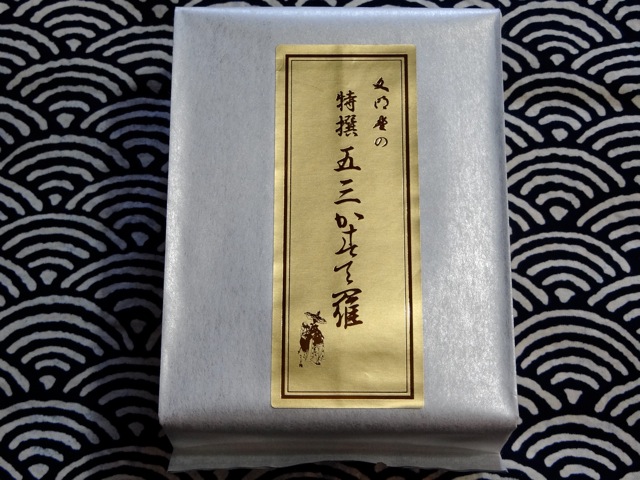 文明堂の
特撰 五三かすて羅